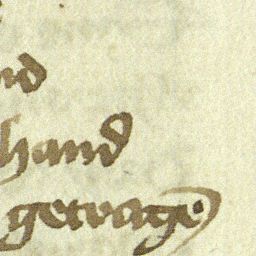 nd
hand
getrage